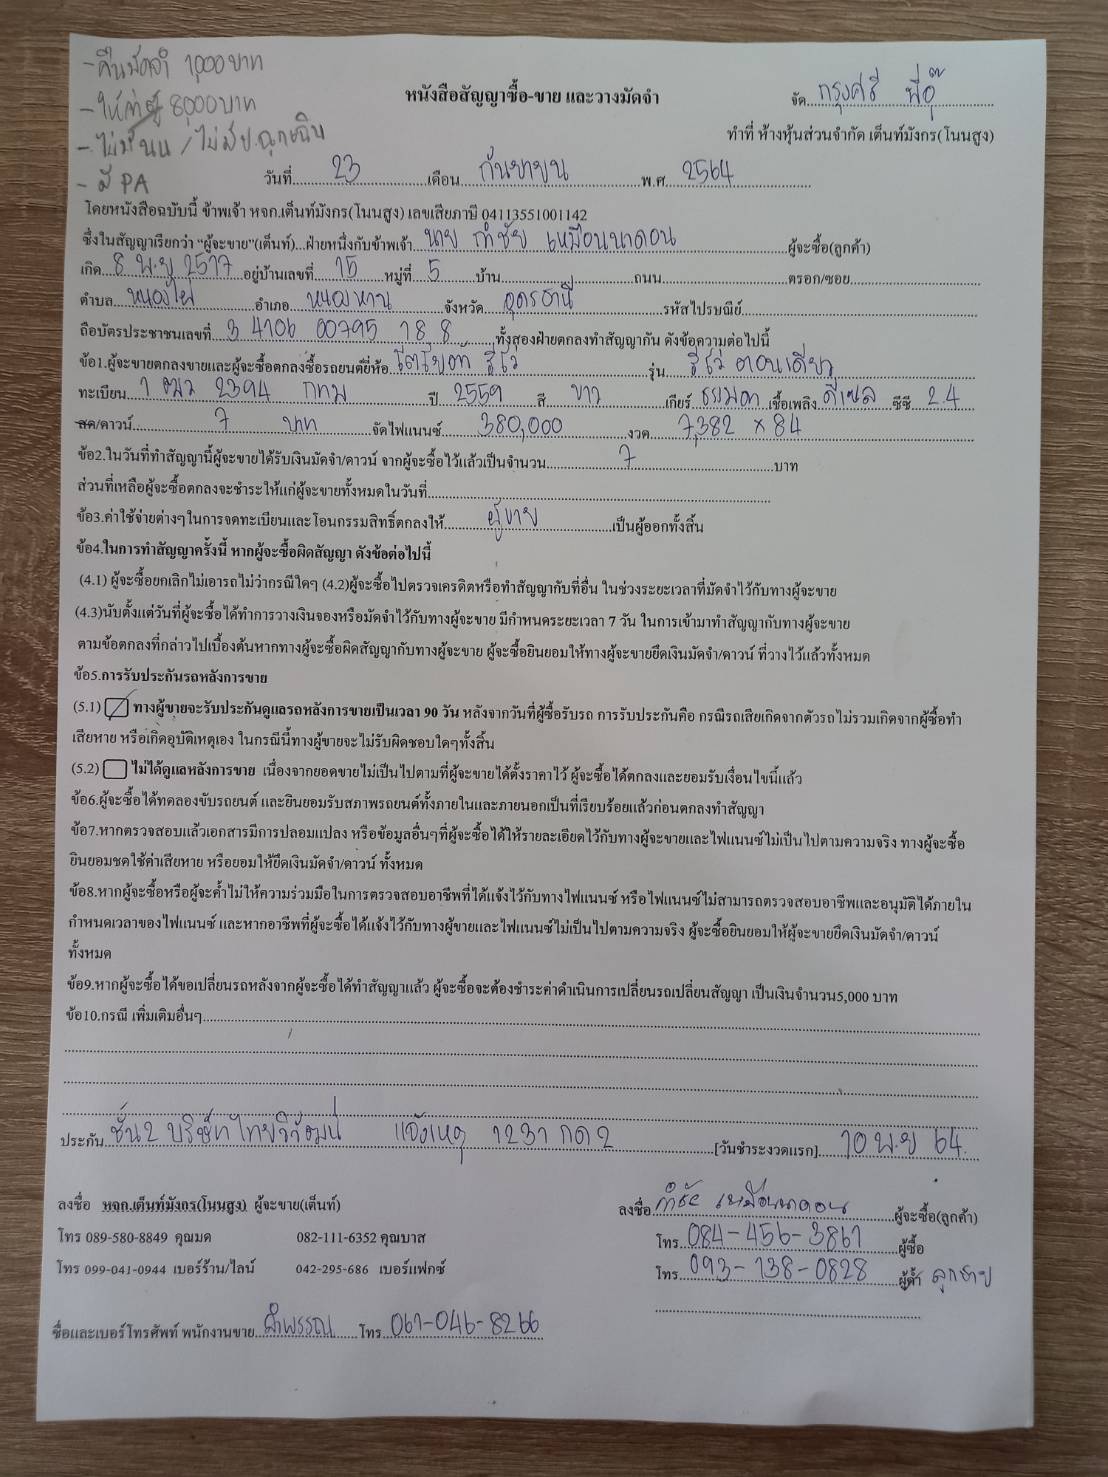 - คืนมัดจำ 1,000 บาท
- ให้ค่าตู้ 8000 บาท
- ไม่มี นน / ไม่มีป.ฉุกเฉิน
- มี PA
หนังสือสัญญาซื้อ-ขาย และวางมัดจำ
จัด กรุงศรี พี่อุ๊
ทำที่ ห้างหุ้นส่วนจำกัด เต็นท์มังกร(โนนสูง)
วันที่ 23 เดือน กันยายน พ.ศ. 2564
โดยหนังสือฉบับนี้ ข้าพเจ้า หจก.เต็นท์มังกร(โนนสูง) เลขเสียภาษี 04113551001142
ซึ่งในสัญญาเรียกว่า "ผู้จะขาย"(เต็นท์)...ฝ่ายหนึ่งกับข้าพเจ้า นาย กำชัย เหมือนนาดอน ผู้จะซื้อ(ลูกค้า)
เกิด 8 พ.ย 2517 อยู่บ้านเลขที่ 15 หมู่ที่ 5 บ้าน ถนน ตรอก/ซอย
ตำบล หนองไผ่ อำเภอ หนองหาน จังหวัด อุดรธานี รหัสไปรษณีย์
ถือบัตรประชาชนเลขที่ 3 4106 00795 18 8 ทั้งสองฝ่ายตกลงทำสัญญากัน ดังข้อความต่อไปนี้
ข้อ1.ผู้จะขายตกลงขายและผู้จะซื้อตกลงซื้อรถยนต์ยี่ห้อ โตโยต้า รีโว่ รุ่น รีโว่ ตอนเดียว
ทะเบียน 1 ฒว 2394 กทม ปี 2559 สี ขาว เกียร์ ธรรมดา เชื้อเพลิง ดีเซล ซีซี 2.4
สด/ดาวน์ 7 บาท จัดไฟแนนซ์ 380,000 งวด 7,382 x 84
ข้อ2.ในวันที่ทำสัญญานี้ผู้จะขายได้รับเงินมัดจำ/ดาวน์ จากผู้จะซื้อไว้แล้วเป็นจำนวน 7 บาท
ส่วนที่เหลือผู้จะซื้อตกลงจะชำระให้แก่ผู้จะขายทั้งหมดในวันที่
ข้อ3.ค่าใช้จ่ายต่างๆในการจดทะเบียนและโอนกรรมสิทธิ์ตกลงให้ ผู้ขาย เป็นผู้ออกทั้งสิ้น
ข้อ4.ในการทำสัญญาครั้งนี้ หากผู้จะซื้อผิดสัญญา ดังข้อต่อไปนี้
(4.1) ผู้จะซื้อยกเลิกไม่เอารถไม่ว่ากรณีใดๆ (4.2)ผู้จะซื้อไปตรวจเครดิตหรือทำสัญญากับที่อื่น ในช่วงระยะเวลาที่มัดจำไว้กับทางผู้จะขาย
(4.3)นับตั้งแต่วันที่ผู้จะซื้อได้ทำการวางเงินจองหรือมัดจำไว้กับทางผู้จะขาย มีกำหนดระยะเวลา 7 วัน ในการเข้ามาทำสัญญากับทางผู้จะขาย
ตามข้อตกลงที่กล่าวไปเบื้องต้นหากทางผู้จะซื้อผิดสัญญากับทางผู้จะขาย ผู้จะซื้อยินยอมให้ทางผู้จะขายยึดเงินมัดจำ/ดาวน์ ที่วางไว้แล้วทั้งหมด
ข้อ5.การรับประกันรถหลังการขาย
(5.1) ทางผู้ขายจะรับประกันดูแลรถหลังการขายเป็นเวลา 90 วัน หลังจากวันที่ผู้ซื้อรับรถ การรับประกันคือ กรณีรถเสียเกิดจากตัวรถไม่รวมเกิดจากผู้ซื้อทำ
เสียหาย หรือเกิดอุบัติเหตุเอง ในกรณีนี้ทางผู้ขายจะไม่รับผิดชอบใดๆทั้งสิ้น
(5.2) ไม่ได้ดูแลหลังการขาย เนื่องจากยอดขายไม่เป็นไปตามที่ผู้จะขายได้ตั้งราคาไว้ ผู้จะซื้อได้ตกลงและยอมรับเงื่อนไขนี้แล้ว
ข้อ6.ผู้จะซื้อได้ทดลองขับรถยนต์ และยินยอมรับสภาพรถยนต์ทั้งภายในและภายนอกเป็นที่เรียบร้อยแล้วก่อนตกลงทำสัญญา
ข้อ7.หากตรวจสอบแล้วเอกสารมีการปลอมแปลง หรือข้อมูลอื่นๆที่ผู้จะซื้อได้ให้รายละเอียดไว้กับทางผู้จะขายและไฟแนนซ์ไม่เป็นไปตามความจริง ทางผู้จะซื้อ
ยินยอมชดใช้ค่าเสียหาย หรือยอมให้ยึดเงินมัดจำ/ดาวน์ ทั้งหมด
ข้อ8.หากผู้จะซื้อหรือผู้จะค้ำไม่ให้ความร่วมมือในการตรวจสอบอาชีพที่ได้แจ้งไว้กับทางไฟแนนซ์ หรือไฟแนนซ์ไม่สามารถตรวจสอบอาชีพและอนุมัติได้ภายใน
กำหนดเวลาของไฟแนนซ์ และหากอาชีพที่ผู้จะซื้อได้แจ้งไว้กับทางผู้ขายและไฟแนนซ์ไม่เป็นไปตามความจริง ผู้จะซื้อยินยอมให้ผู้จะขายยึดเงินมัดจำ/ดาวน์
ทั้งหมด
ข้อ9.หากผู้จะซื้อได้ขอเปลี่ยนรถหลังจากผู้จะซื้อได้ทำสัญญาแล้ว ผู้จะซื้อจะต้องชำระค่าดำเนินการเปลี่ยนรถเปลี่ยนสัญญา เป็นเงินจำนวน5,000 บาท
ข้อ10.กรณี เพิ่มเติมอื่นๆ
ประกัน ชั้น2 บริษัทไทยวิวัฒน์ แจ้งเหตุ 1231 กด 2 [วันชำระงวดแรก] 10 พ.ย 64.
ลงชื่อ หจก.เต็นท์มังกร(โนนสูง) ผู้จะขาย(เต็นท์)
ลงชื่อ กำชัย เหมือนนาดอน ผู้จะซื้อ(ลูกค้า)
โทร 089-580-8849 คุณมด 082-111-6352 คุณบาส
โทร 084-456-3861 ผู้ซื้อ
โทร 099-041-0944 เบอร์ร้าน/ไลน์ 042-295-686 เบอร์แฟกซ์
โทร 093-138-0828 ผู้ค้ำ ลูกชาย
ชื่อและเบอร์โทรศัพท์ พนักงานขาย ลำพรรณ โทร 061-046-8266